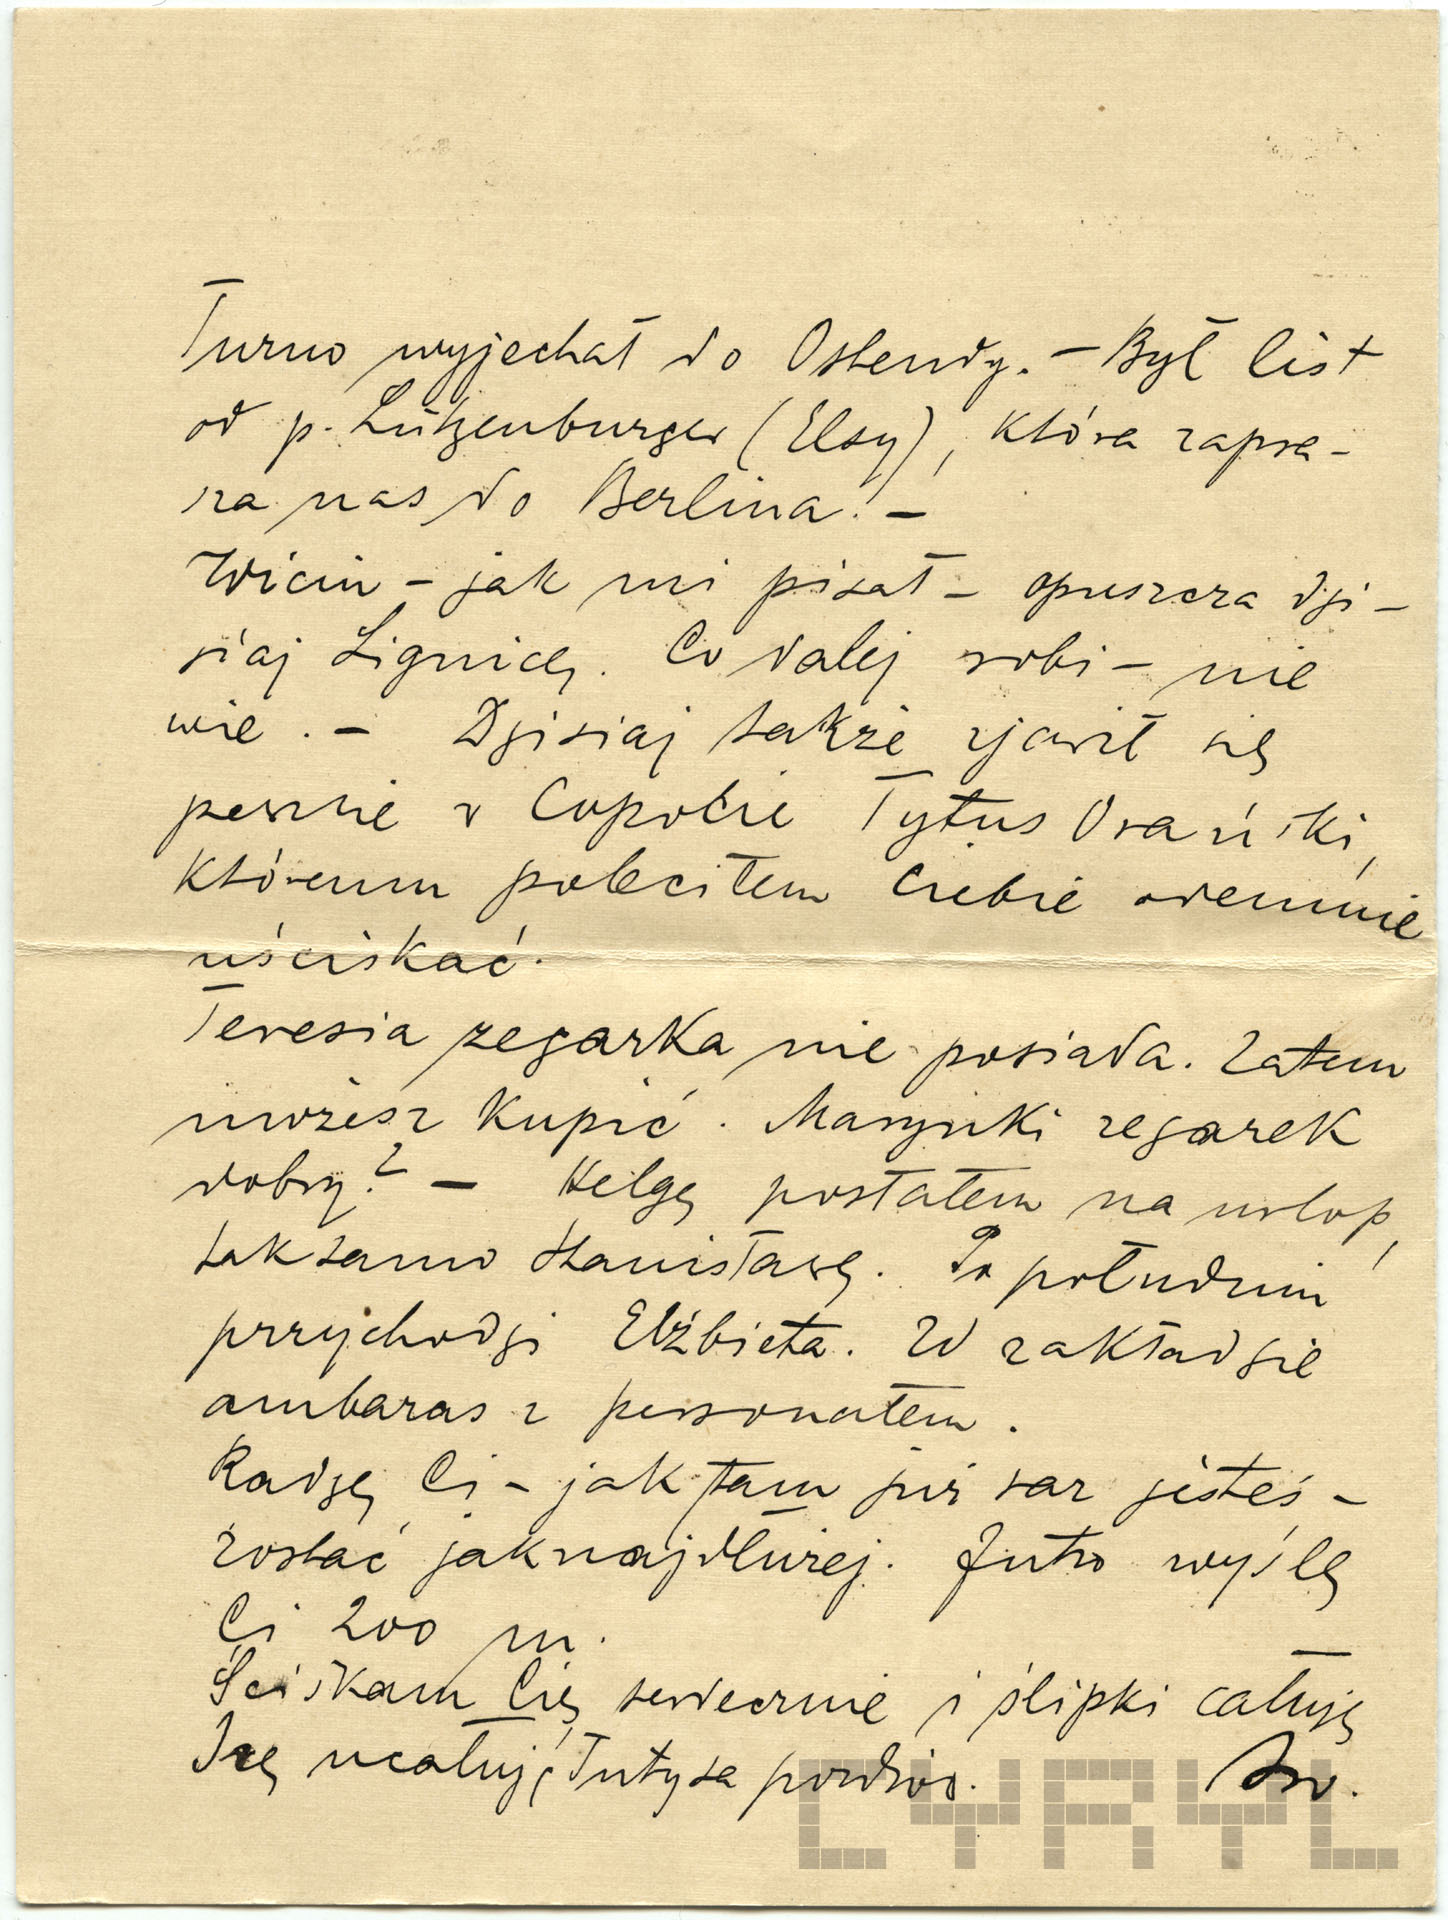 Turno wyjechał do Ostendy. – Był list
od p. Lützenburger (Elsy), która zapra-
za nas do Berlina. –
Wicin – jak mi pisał – opuszcza dzi-
siaj Lignicę. Co dalej robi – nie
wie. – Dzisiaj także zjawił się
pewnie w Copocie Tytus
któremu poleciłem Ciebie odemnie
uściskać.
Teresia zegarka nie posiada. Zatem
możesz kupić. Marynki zegarek
dobry? – Helgę posłałem na urlop,
taksamo Stanisławę. Po południu
przychodzi Elżbieta. W zakładzie
ambaras z personałem.
Radzę Ci – jak tam już raz jesteś –
zostać jaknajdłużej. Jutro wyślę
Ci 200 m.
Ściskam Cię serdecznie i ślipki całuję
Izę ucałuj, Tutysa pozdrów.
CYRYL